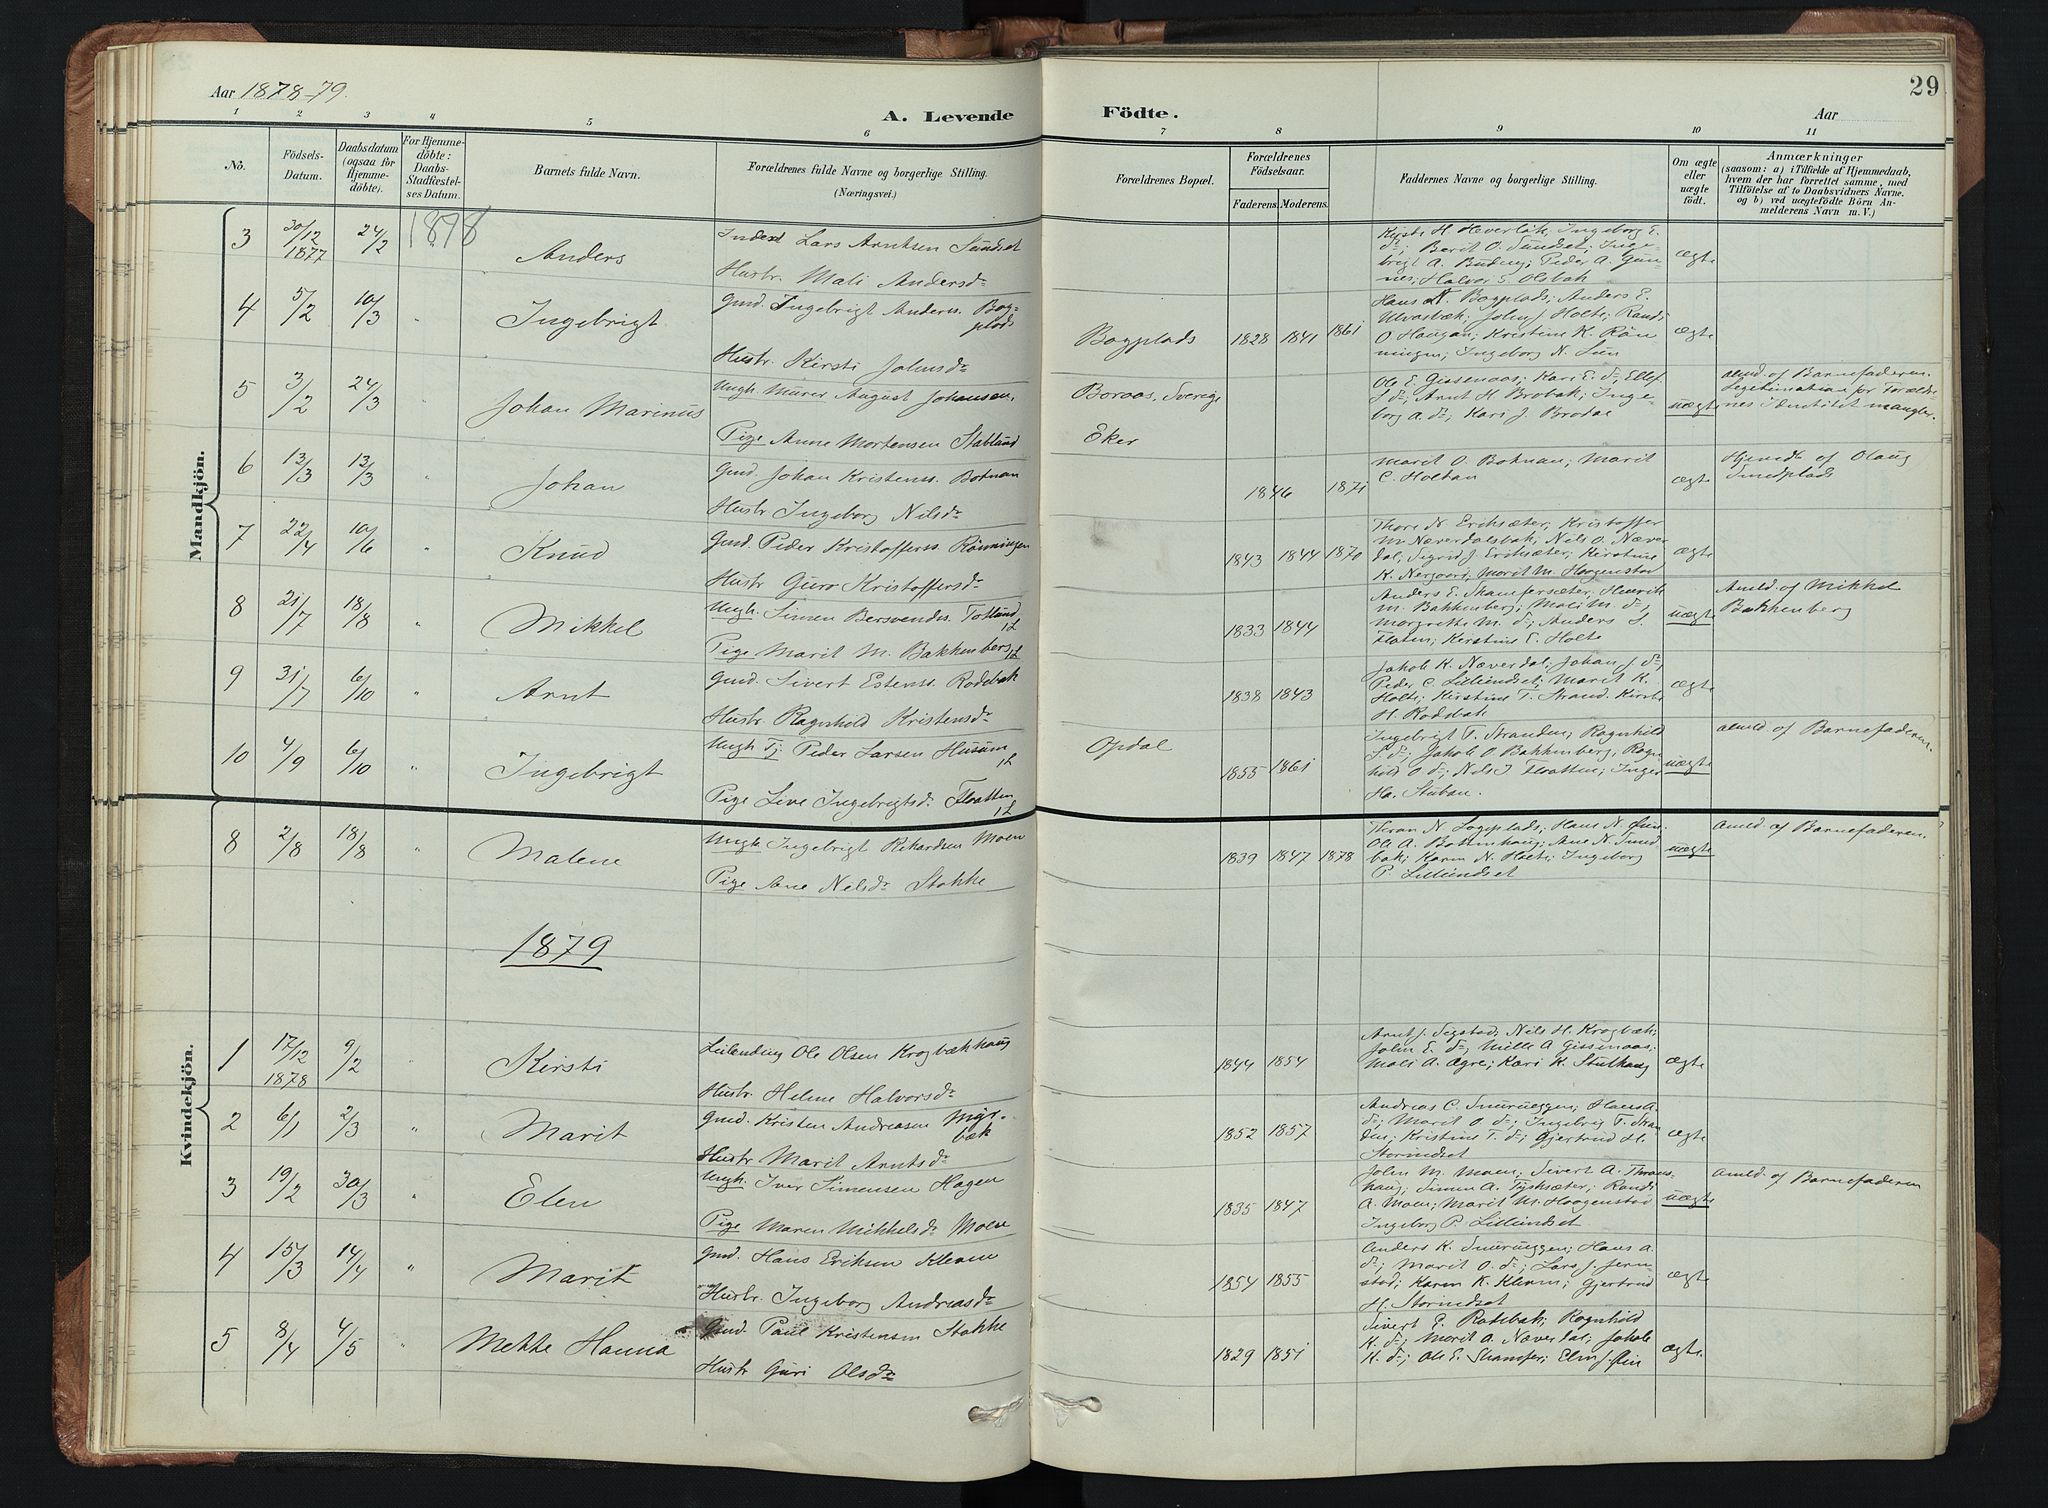 29
Aar 1878-79.
A. Levende Födte.
Aar
1 2 3 4 5 6 7 8 9 10 11
No.
Födsels-
Datum.
Daabsdatum
(ogsaa for
Hjemme-
döbte).
For Hjemme-
döbte:
Daabs-
Stadfæstel-
ses Datum.
Barnets fulde Navn.
Forældrenes fulde Navne og borgerlige Stilling.
(Næringsvei.)
Forældrenes Bopæl.
Forældrenes
Födselsaar.
Faderens. Moderens.
Faddernes Navne og borgerlig Stilling.
Om ægte
eller
uægte
födt.
Anmærkninger
(saasom: a) i Tilfælde af Hjemmedaab,
hvem der har forrettet samme, med
Tilföielse af to Daabsvidners Navne.
og b) ved uægtefödte Börn An-
melderens Navn m. V.)
Mandkjön.
1898
3 30/12 1877 24/2 Anders
Inderst Lars Arntsen Sundset
Hustr. Mali Andersdr
Kirsti H. Heverlök; Ingeborg E.
dr; Berit O. Sundset; Inge-
brigt A. Buding; Peder A. Gun-
nes; Halvor S. Olsbak
ægte
4 5/2 10/3 " Ingebrigt
Gmd. Ingebrigt Anderss. Bog-
plads
Hustr. Kirsti Johnsdr
Bogplads 1828 1841 1861
Hans N. Bogplads; Anders E.
Ulvasbæk; John J. Holte; Randi
O Haugan; Kristine K. Rön-
ningen; Ingeborg N. Lien
ægte
5 3/2 24/3 " Johan Marinus
Ungk. Murer August Johansen,
Pige Anne Mortensen Stablund
Boraas, Sverige
Eker
Ole E. Gissenaas; Kari E. dr; Ellef
J dr; Arnt H Brobak; Inge-
borg A. dr; Kari J. Brodal
uægte
anmd. af Barnefaderen.
Legitimation for Foræld-
nes Identitet mangler.
6 13/3 13/3 " Johan
Gmd Johan Kristenss. Botnan
Hustr Ingeborg Nilsdr
1846 1871
Marit O. Botnan; Marit
C. Holtan
ægte
Hjemdt af Olaug
Sundplads
7 22/4 10/6 " Knud
Gmd. Peder Kristofferss. Rönningen
Hustr Guro Kristoffersdr
1843 1844 1870
Thore N. Eriksæter; Kristoffer
M. Næverdalsbak; Nils O. Næver
dal; Sigrid J. Eriksæter; Kirstine
K. Nergaard; Marit M. Haagenstad
ægte
8 21/7 18/8 " Mikkel
Ungk. Simen Bersvendss. Totlund
1L
Pige Marit M. Bakkenberg 1L
1833 1844
Anders E. Skamfersæter; Henrik
M. Bakkenberg; Mali M. dr;
Margrethe M. dr; Anders S.
Floten; Kerstine E. Holte
uægte
Anmld af Mikkel
Bakkenberg
9 31/7 6/10 " Arnt
Gmd. Sivert Estenss. Rodebak
Hustr. Ragnhild Kristensdr
1838 1843
Jakob K. Næverdal; Johan J dr;
Peder C. Lilleindset; Marit K.
Holte; Kirstine T. Strand. Kirsti
H. Rodebak
ægte
10 4/9 6/10 " Ingebrigt
Ungk. Tj. Peder Larsen Husum
1L
Pige Live Ingebrigtsdr Floatten
1L
Opdal 1855 1861
Ingebrigt T. Stranden; Ragnhild
S. dr; Jakob O. Bakkenberg; Ragn-
hild O dr; Nils J Floatten; Inger
Ha. Stuban.
uægte
anmld af Barnefaderen.
Kvindekjön.
8 2/8 18/8 " Malene
Ungk Ingebrigt Rikardsen Moen
Pige Ane Nelsdr Stokke
1839 1847 1878
Thran N. Logplads; Hans N. Lien
Ole A. Bottenhaug; Ane N. Sund
bak; Karen N. Holte; Ingeborg
P. Lilleindset
uægte
Anmld af Barnefaderen.
1879
1 17/12 1878 9/2 " Kirsti
Leilending Ole Olsen Krogbækhaug
Hustr. Helene Halvorsdr
1844 1854
Arnt J. Segstad; Nils H. Krogbæk;
John E. dr; Mille A Gissenaas;
Mali A. Agre; Kari K. Stulhaug
ægte
2 6/1 2/3 " Marit
Gmd. Kristen Andreasen Myr-
bæk
Hustr Marit Arntsdr
1852 1857
Andreas C. Snurueggen; Hans A.
dr; Marit O. dr; Ingebrig T. Stran
den; Kristine T. dr; Gjertrud H.
Storindset
ægte
3 19/2 30/3 " Elen
Ungk. Iver Simensen Hagen
Pige Maren Mikkelsdr Moene
1835 1847
John M. Moen; Sivert A. Thrans-
haug; Simen A. Tysksæter; Randi
A. Moen; Marit M. Haagenstad
Ingeborg P. Lilleindset
uægte
Anmld af Barnefaderen
4 15/3 14/4 " Marit
Gmd. Hans Eriksen Kleven
Hustr. Ingeborg Andreasdr
1854 1855
Anders K. Snurueggen; Hans A.
dr; Marit O. dr; Lars J. Jern-
stad; Karen K. Kleven; Gjertrud
H. Storindset
ægte
5 8/4 4/5 " Mekke Hanna
Gmd. Paul Kristensen Stokke
Hustr Guri Olsdr
1829 1851
Sivert E. Rodebak; Ragnhild
K. dr; Marit A. Næverdal; Jakob
K. dr; Ole E. Skamfer; Elen J. Lien
ægte.